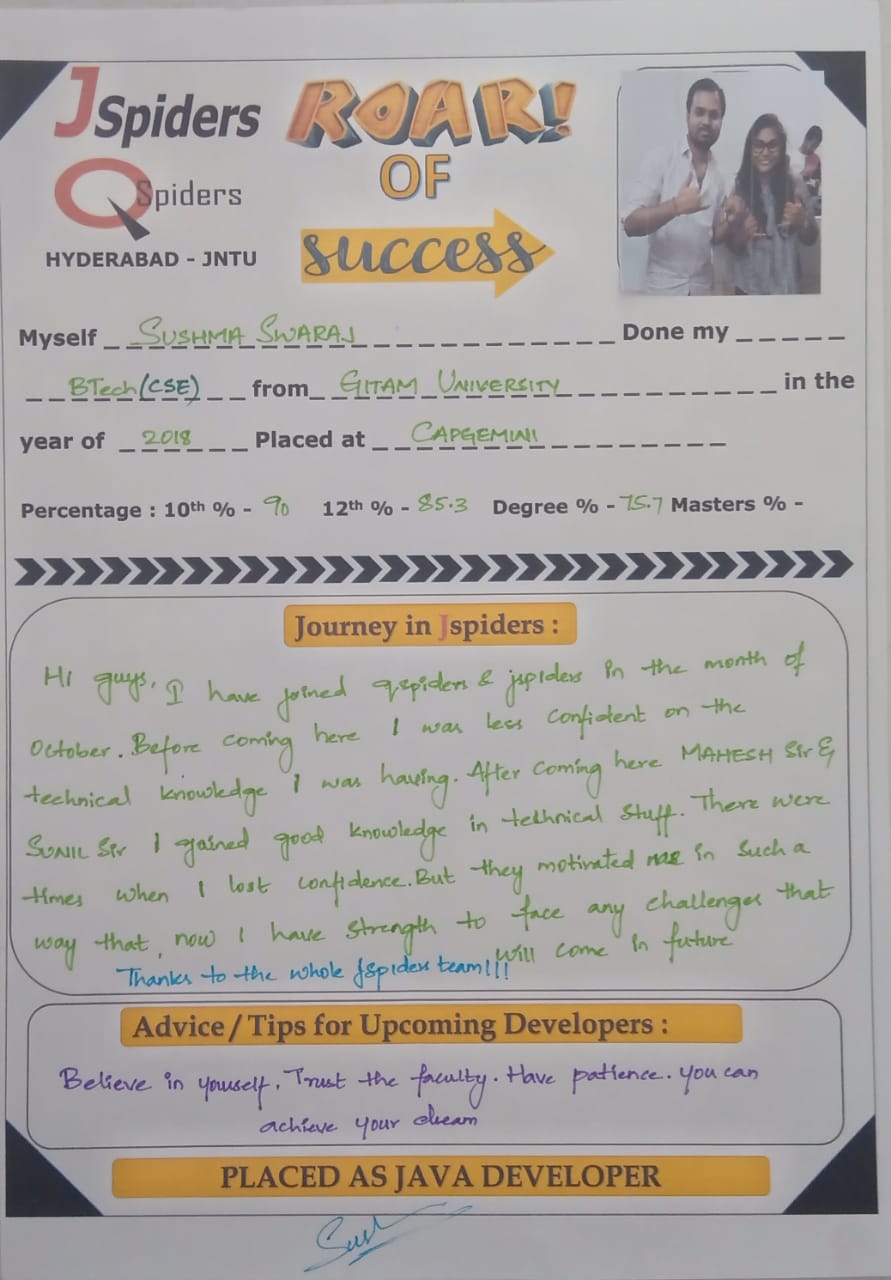 JSpiders
ROAR! OF success
QSpiders
HYDERABAD - JNTU
Myself SUSHMA SWARAJ Done my
BTech (CSE) from GITAM UNIVERSITY in the
year of 2018 Placed at CAPGEMINI
Percentage : 10th % - 90 12th % - 85.3 Degree % - 75.7 Masters % -
Journey in Jspiders :
Hi guys, I have joined qspiders & jspiders in the month of
October. Before coming here I was less confident on the
technical knowledge I was having. After coming here MAHESH Sir &
SUNIL Sir I gained good knowledge in technical stuff. There were
times when I lost confidence. But they motivated me in such a
way that, now I have strength to face any challenges that
will come in future
Thanks to the whole Jspiders team!!!
Advice / Tips for Upcoming Developers :
Believe in youself. Trust the faculty. Have patience. You can
achieve your dream
PLACED AS JAVA DEVELOPER